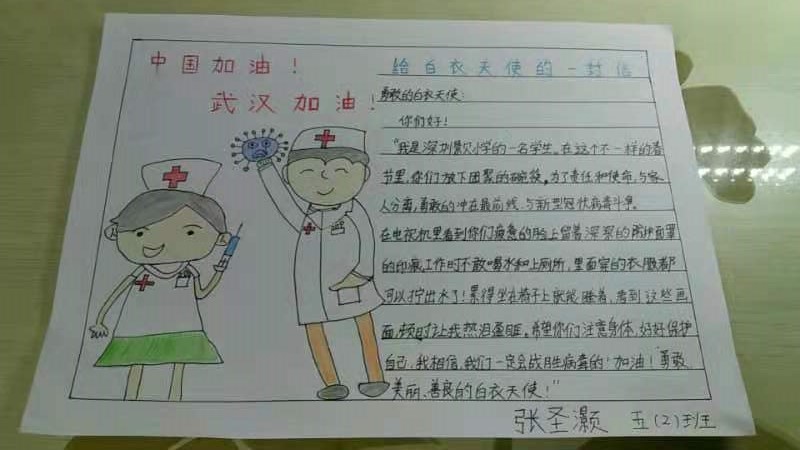 中国加油！
武汉加油！
给白衣天使的一封信
勇敢的白衣天使：
你们好！
"我是深圳景贝小学的一名学生。在这个不一样的春
节里，你们放下团聚的碗筷。为了责任和使命，与家
人分离，勇敢的冲在最前线，与新型冠状病毒斗争。
在电视机里看到你们疲惫的脸上留着深深的防护面罩
的印痕，工作时不敢喝水和上厕所，里面穿的衣服都
可以拧出水了！累得坐在椅子上就能睡着，看到这些画
面，顿时让我热泪盈眶。希望你们注意身体，好好保护
自己，我相信，我们一定会战胜病毒的！加油！勇敢、
美丽、善良的白衣天使！"
张圣灏 五（2）班